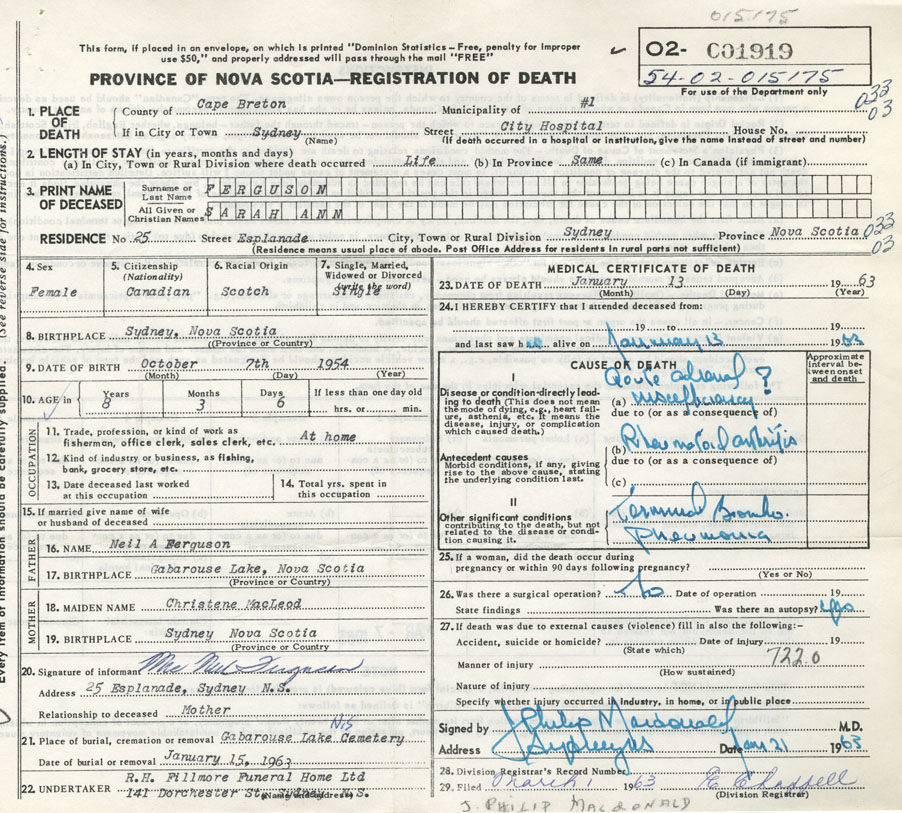 015175
This form, if placed in an envelope, on which is printed "Dominion Statistics – Free, penalty for improper
use $50," and properly addressed will pass through the mail "FREE"
PROVINCE OF NOVA SCOTIA—REGISTRATION OF DEATH
02- C01919
54-02-015175
For use of the Department only
033
03
1. PLACE OF DEATH
County of Cape Breton Municipality of #1
If in City or Town Sydney Street City Hospital House No.
(Name) (If death occurred in a hospital or institution, give the name instead of street and number)
2. LENGTH OF STAY (in years, months and days)
(a) In City, Town or Rural Division where death occurred Life (b) In Province Same (c) In Canada (if immigrant)
3. PRINT NAME OF DECEASED
Surname or Last Name FERGUSON
All Given or Christian Names SARAH ANN
RESIDENCE No 25 Street Esplanade City, Town or Rural Division Sydney Province Nova Scotia
033
03
(Residence means usual place of abode. Post Office Address for residents in rural parts not sufficient)
4. Sex
Female
5. Citizenship (Nationality)
Canadian
6. Racial Origin
Scotch
7. Single, Married, Widowed or Divorced (write the word)
Single
8. BIRTHPLACE Sydney, Nova Scotia
((Province or Country)
9. DATE OF BIRTH October 7th 1954
(Month) (Day) (Year)
10. AGE in Years Months Days If less than one day old
8 3 6 hrs. or min.
OCCUPATION
11. Trade, profession, or kind of work as
fisherman, office clerk, sales clerk, etc. At home
12. Kind of industry or business, as fishing,
bank, grocery store, etc.
13. Date deceased last worked
at this occupation
14. Total yrs. spent in
this occupation
15. If married give name of wife
or husband of deceased
FATHER
16. NAME Neil A Ferguson
17. BIRTHPLACE Gabarouse Lake, Nova Scotia
(Province or Country)
MOTHER
18. MAIDEN NAME Christene MacLeod
19. BIRTHPLACE Sydney Nova Scotia
(Province or Country)
20. Signature of informant Mrs Neil Ferguson
Address 25 Esplanade, Sydney N.S.
Relationship to deceased Mother
N.S
21. Place of burial, cremation or removal Gabarouse Lake Cemetery
Date of burial or removal January 15, 1963
22. UNDERTAKER R.H. Fillmore Funeral Home Ltd
141 Dorchester St., Sydney N.S.
(Name and address)
MEDICAL CERTIFICATE OF DEATH
23. DATE OF DEATH January 13 1963
(Month) (Day) (Year)
24. I HEREBY CERTIFY that I attended deceased from:
19 to 19
and last saw her alive on January 13 1963
CAUSE OF DEATH
Approximate interval between onset and death
I
Disease or condition directly leading to death (This does not mean the mode of dying, e.g., heart failure, asthenia, etc. It means the disease, injury, or complication which caused death.)
(a) Acute adrenal insufficiency ?
due to (or as a consequence of)
Antecedent causes
Morbid conditions, if any, giving rise to the above cause, stating the underlying condition last.
(b) Rheumatoid arthritis
due to (or as a consequence of)
(c)
II
Other significant conditions
contributing to the death, but not related to the disease or condition causing it.
Terminal Broncho.
Pneumonia
25. If a woman, did the death occur during
pregnancy or within 90 days following pregnancy?
(Yes or No)
26. Was there a surgical operation? No Date of operation 19
State findings Was there an autopsy? Yes
27. If death was due to external causes (violence) fill in also the following:–
Accident, suicide or homicide? Date of injury 19
(State which)
722.0
Manner of injury
(How sustained)
Nature of injury
Specify whether injury occurred in industry, in home, or in public place
Signed by J Philip Macdonald M.D.
Address Sydney NS Date Jan 21 1963
28. Division Registrar's Record Number
29. Filed March 1 1963
(Division Registrar)
J. PHILIP MACDONALD
Every item of information should be carefully supplied. (See reverse side for instructions.)